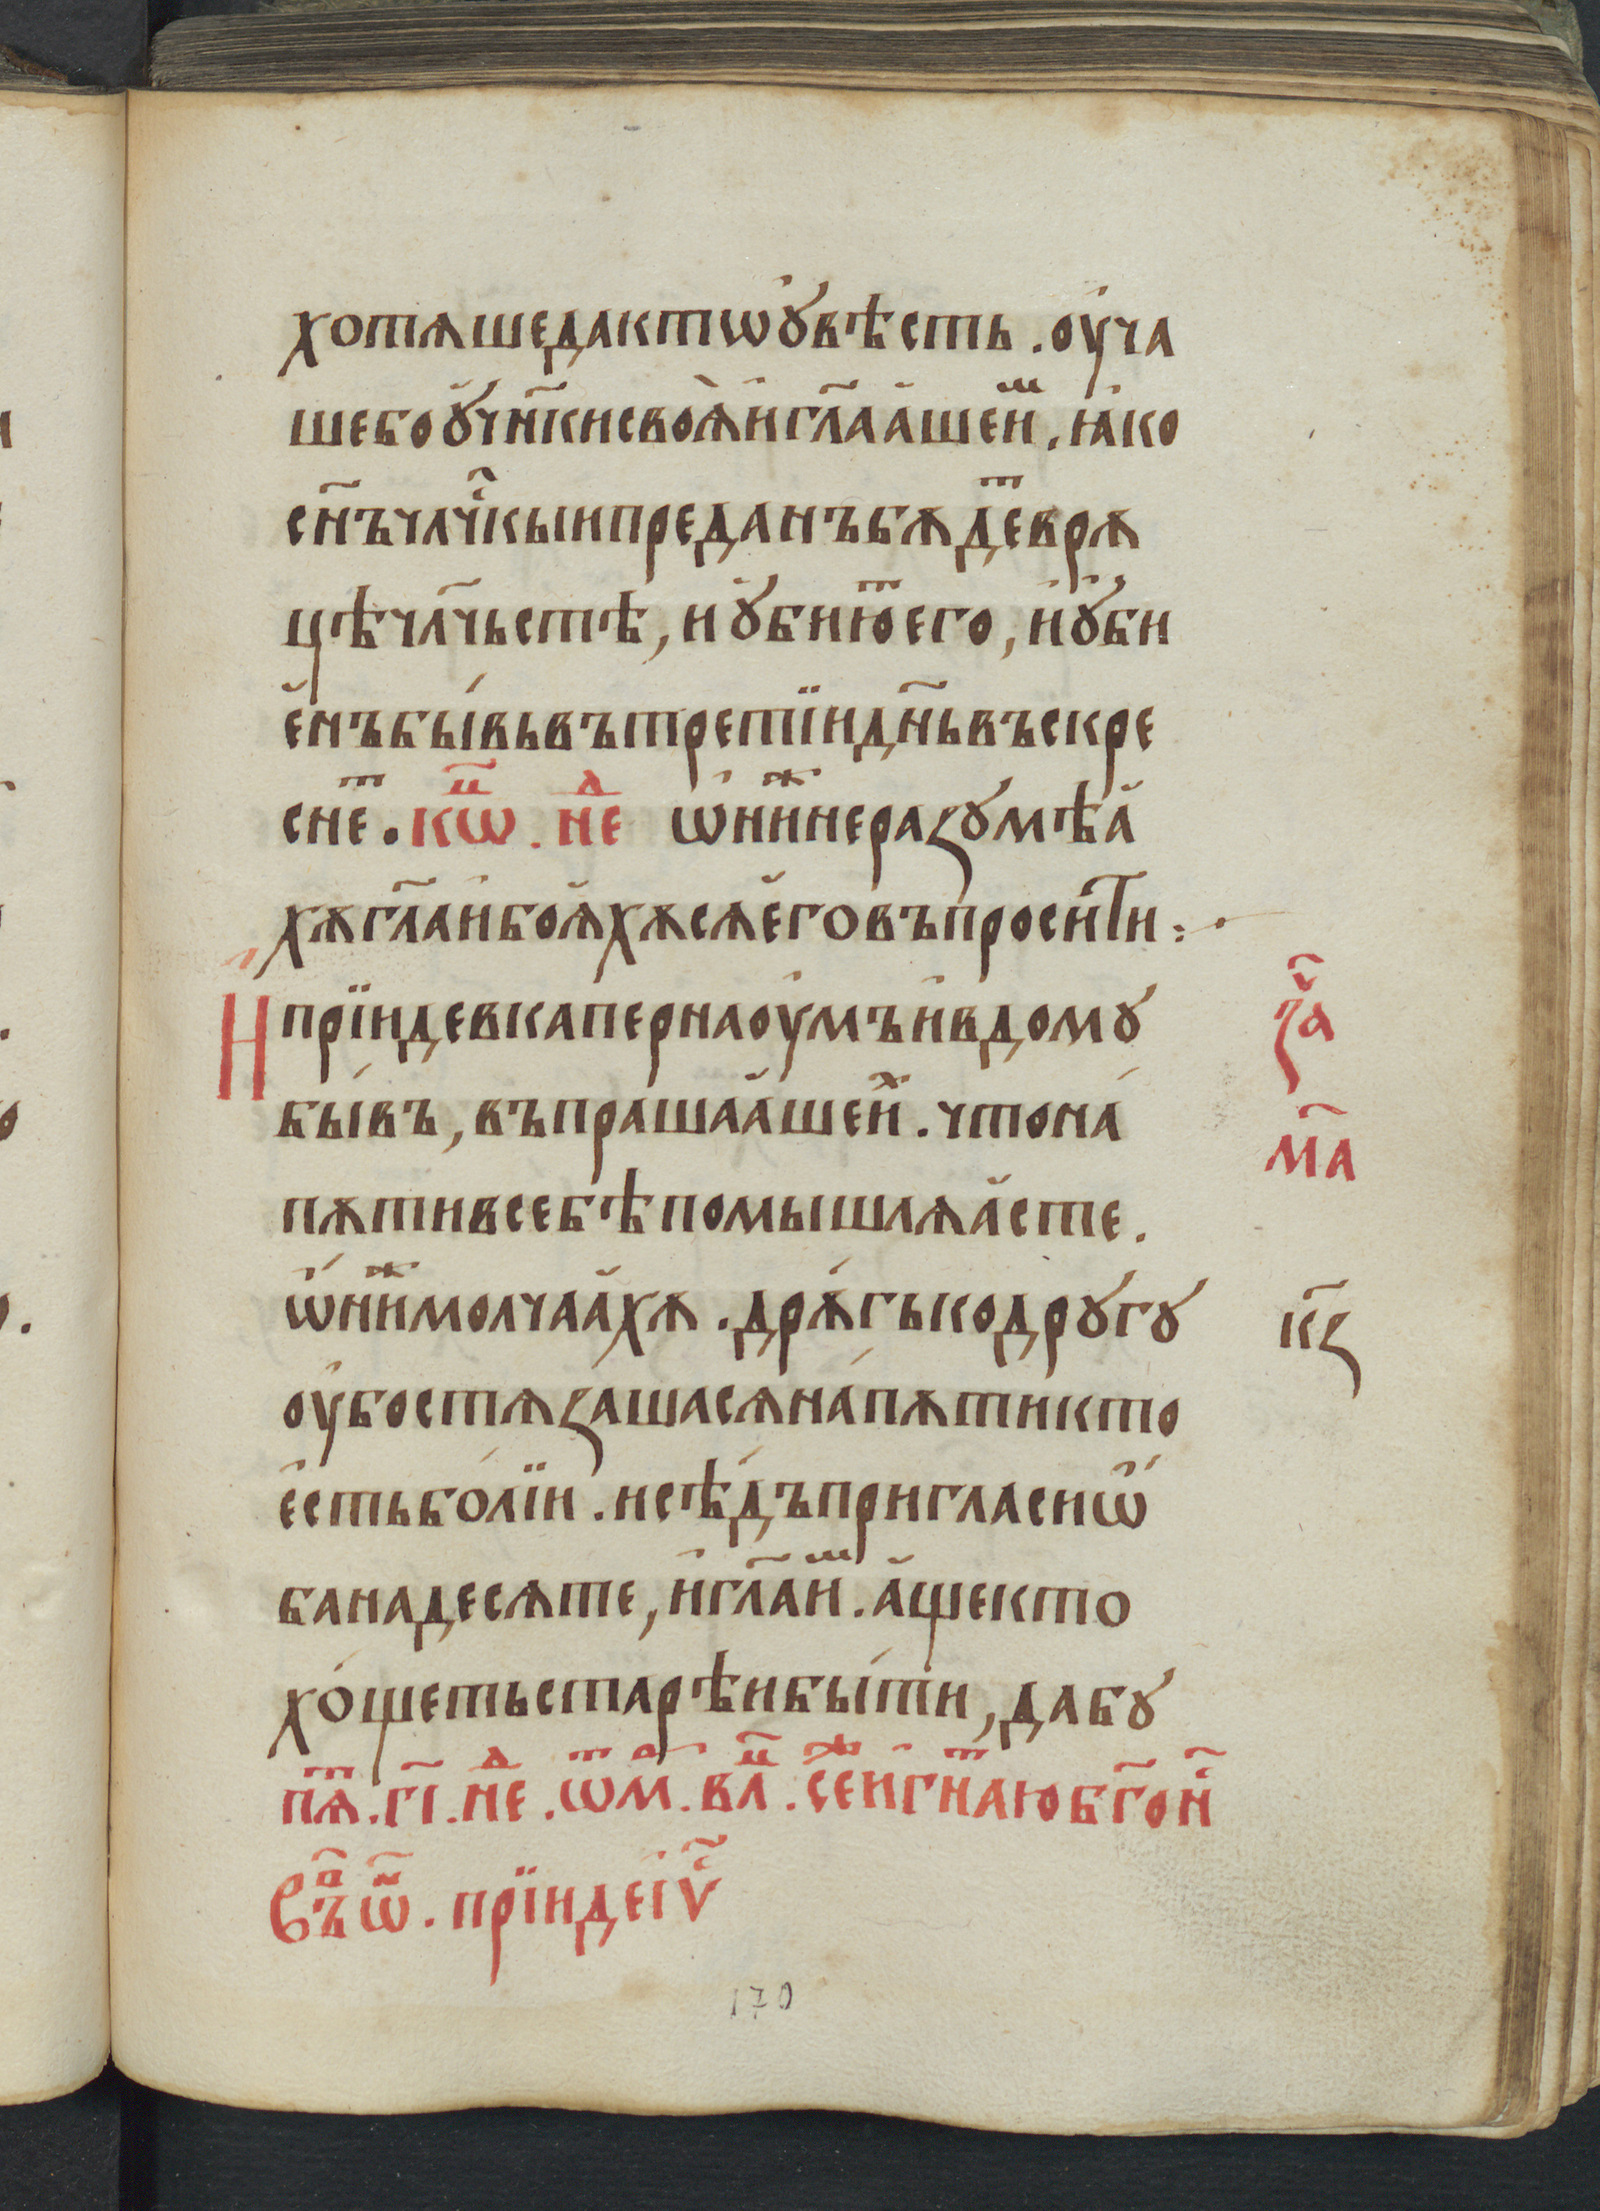 хотѧшедактѡꙋвѣсть. оуча
шебоꙋчн҃кисвоѧ̀игл҃аашеиⷨ. ꙗко
сн҃ъчлч҃кыипреданъбѫдеⷮврѫ
цѣчл҃чьстѣ, иꙋбиюⷮего, иꙋби
енъбы́вьвътретїидн҃ьвъскре
снеⷮ. кѡⷰ҇. неⷣ ѡниⷤнеразꙋмѣа
хѫгл҃аибоѧхѫсѧеговъпросити:·
Ипрїидевкапернаоумъивдомꙋ
бы́въ, въпрашаашеиⷯ. чтона́
пѫтивсебѣпомышлѧасте.
ѡниⷤмолчаахѫ. дрѫ́гькодрꙋгꙋ
оубостѧзашасѧна́пѫтикто
естьбо́лїи. исѣ́дъпригласиѡ́
банадесѧте, игл҃аиⷨ. ащекто
хо́щетьстарѣибы́ти, дабꙋ
пѧⷮ. г҃і. неⷣ. ѿмⷬ. влⷰ҇. сеⷤигнⷮаюбг҃он҃
въⷫ҇ѡ҃ⷩ. прїидеіѵ҃
за҃
ма҃
к҃з
170